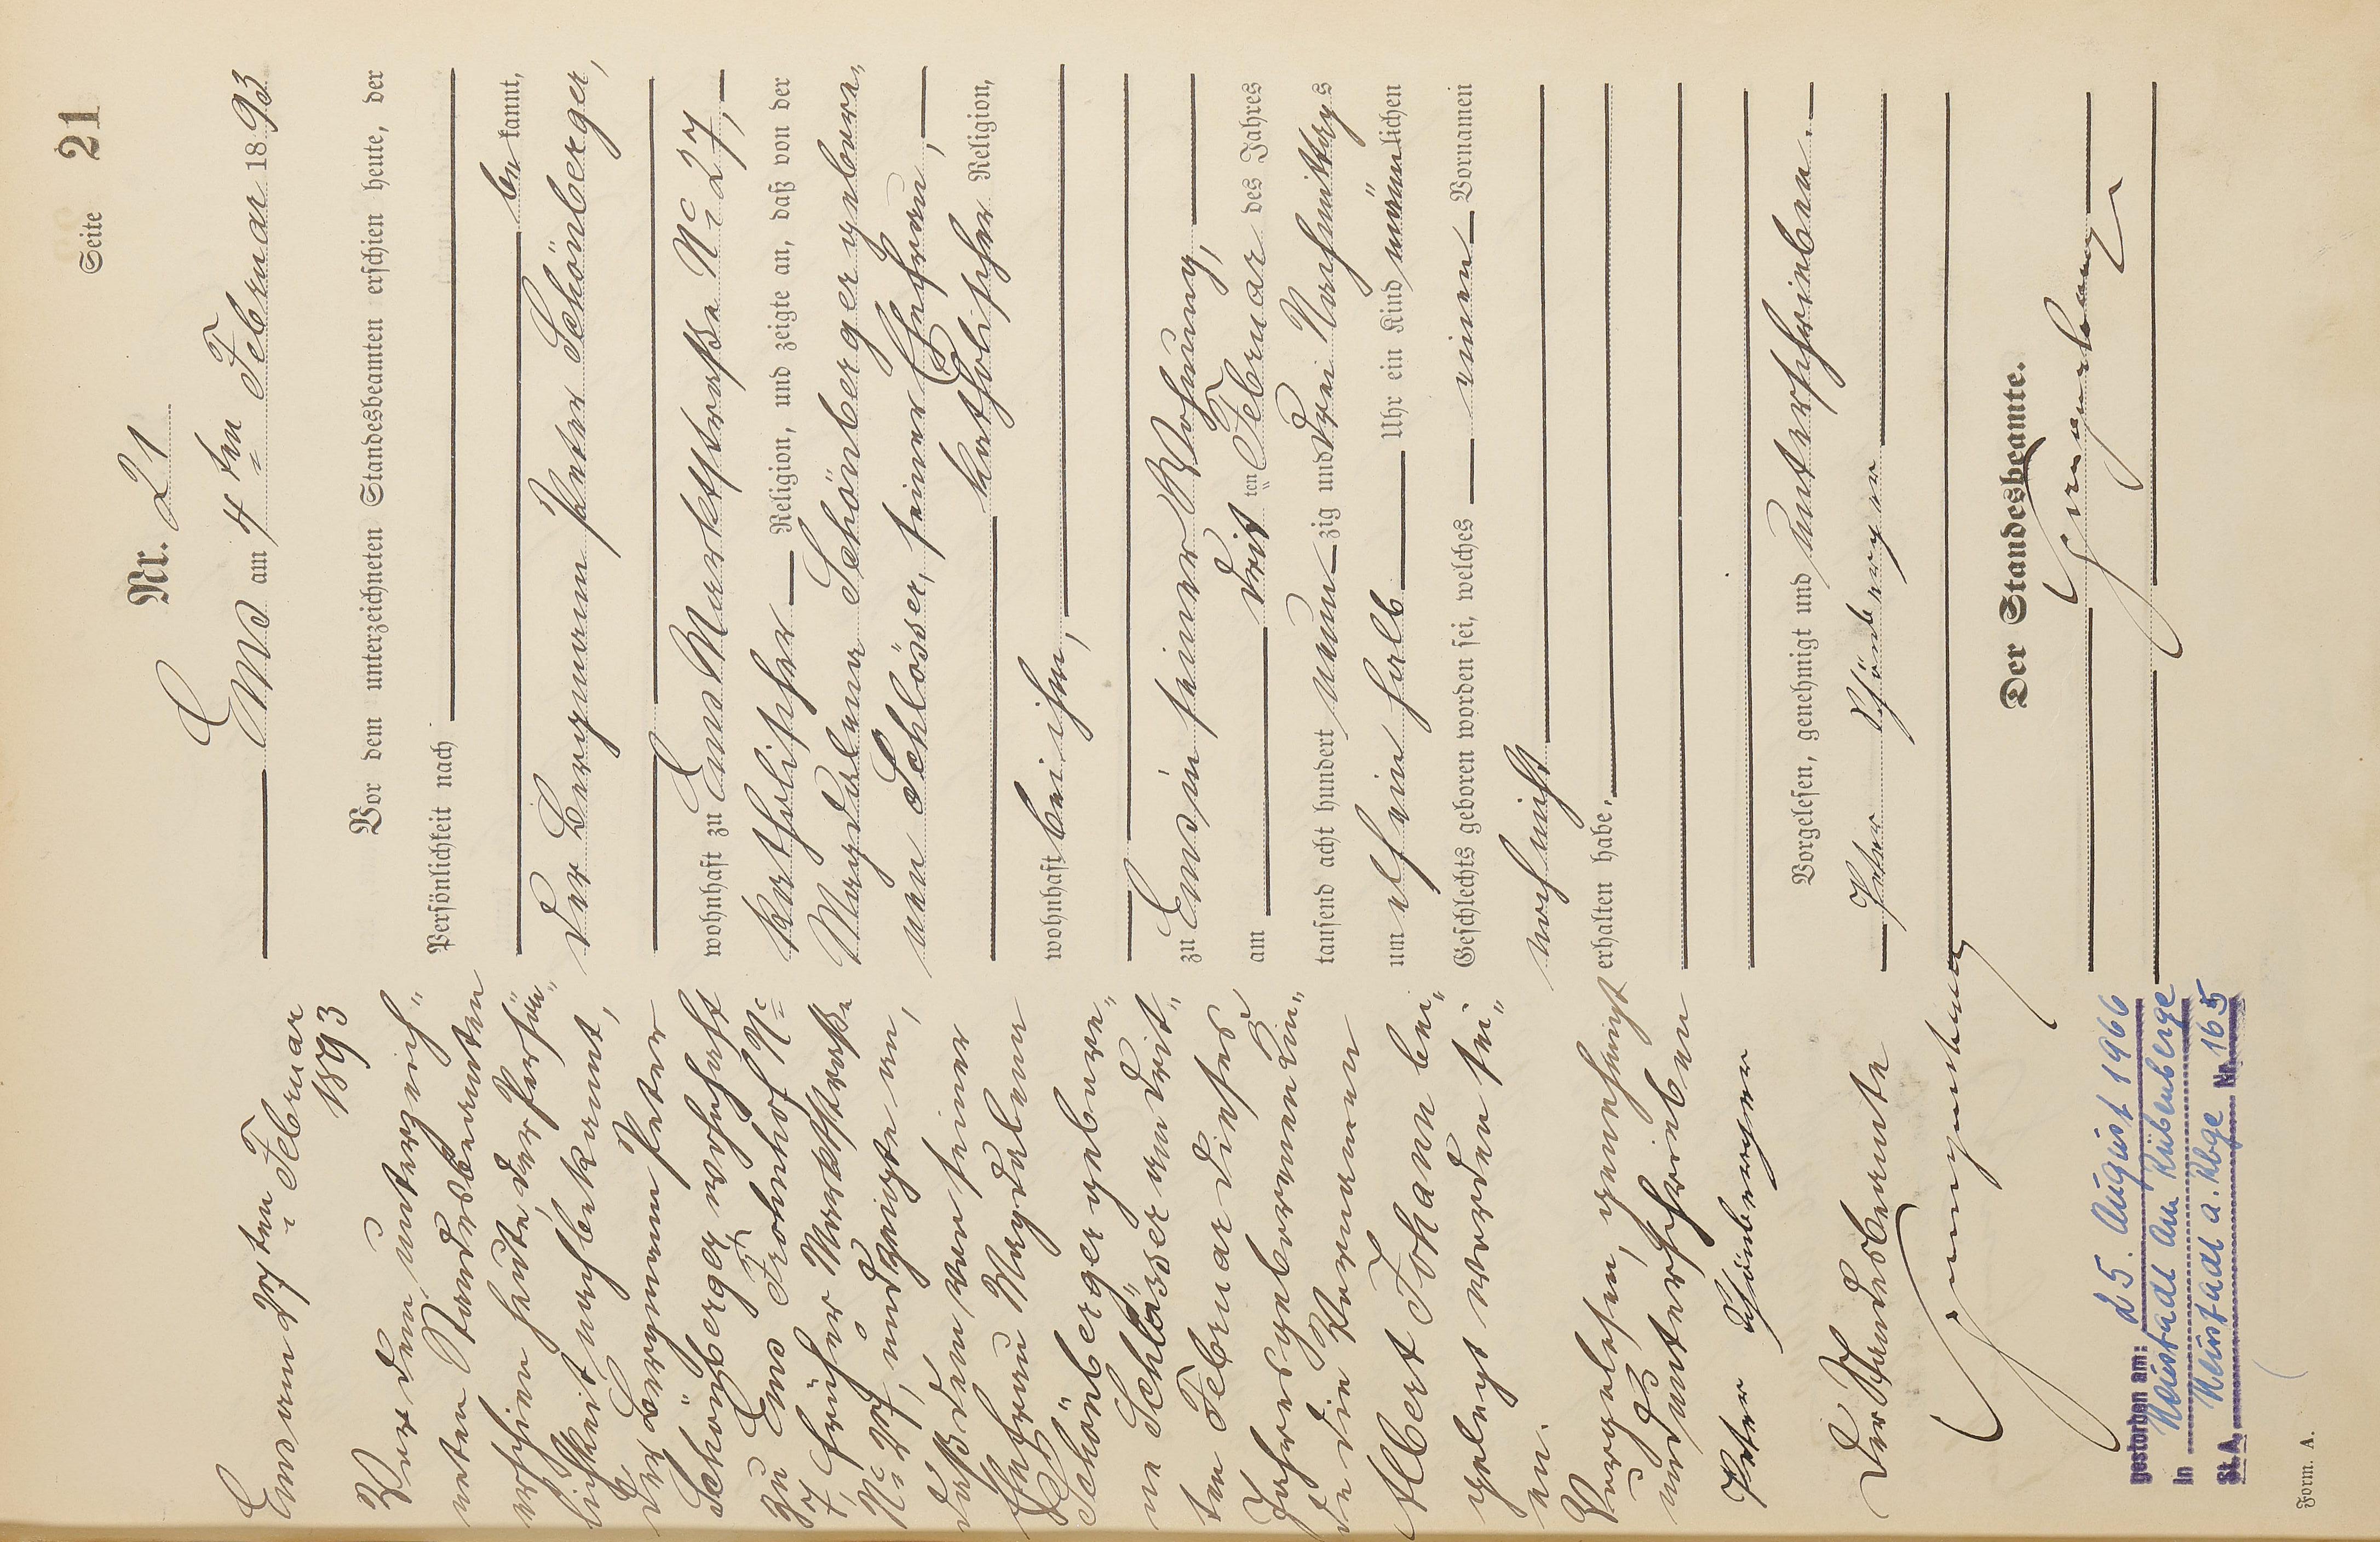 Seite 21
Nr. 21
Ems am 4ten Februar 1893
Vor dem unterzeichneten Standesbeamten erschien heute, der
Persönlichkeit nach
bekannt,
der Bergmann Peter Schönberger,
wohnhaft zu Ems Marktstraße No 27,
katholischer Religion, und zeigte an, daß von der
Magdalena Schönberger gebore-
nen Schlösser, seiner Ehefrau,
katholischer Religion,
wohnhaft bei ihm,
zu Ems in seiner Wohnung,
am dritten Februar des Jahres
tausend acht hundert neunzig und drei Nachmittags
um elf ein halb Uhr ein Kind männlichen
Geschlechts geboren worden sei, welches einen Vornamen
noch nicht
erhalten habe.
Vorgelesen, genehmigt und unterschrieben.
Peter Schönberger
Der Standesbeamte.
Ems am 27ten Februar
1893
Vor dem unterzeich-
neten Standesbeamten
erschien heute, der Persön-
lichkeit nach bekannt,
der Bergmann Peter
Schönberger, wohnhaft
zu Ems Fronhof No
7, früher Marktstraße
No 27, und zeigte an,
daß dem von seiner
Ehefrau Magdalena
Schönberger gebore-
ne Schlösser am drit-
ten Februar dieses
Jahres geborenen Kin-
de die Vornamen
Albert Johann bei-
gelegt worden sei-
en.
Vorgelesen, genehmigt
und unterschrieben
Peter Schönberger
Der Standesbeamte
gestorben am: 25. August 1966
in Neustadt am Rübenberge
St. A. Neustadt a. Rbge Nr. 165
Form. A.